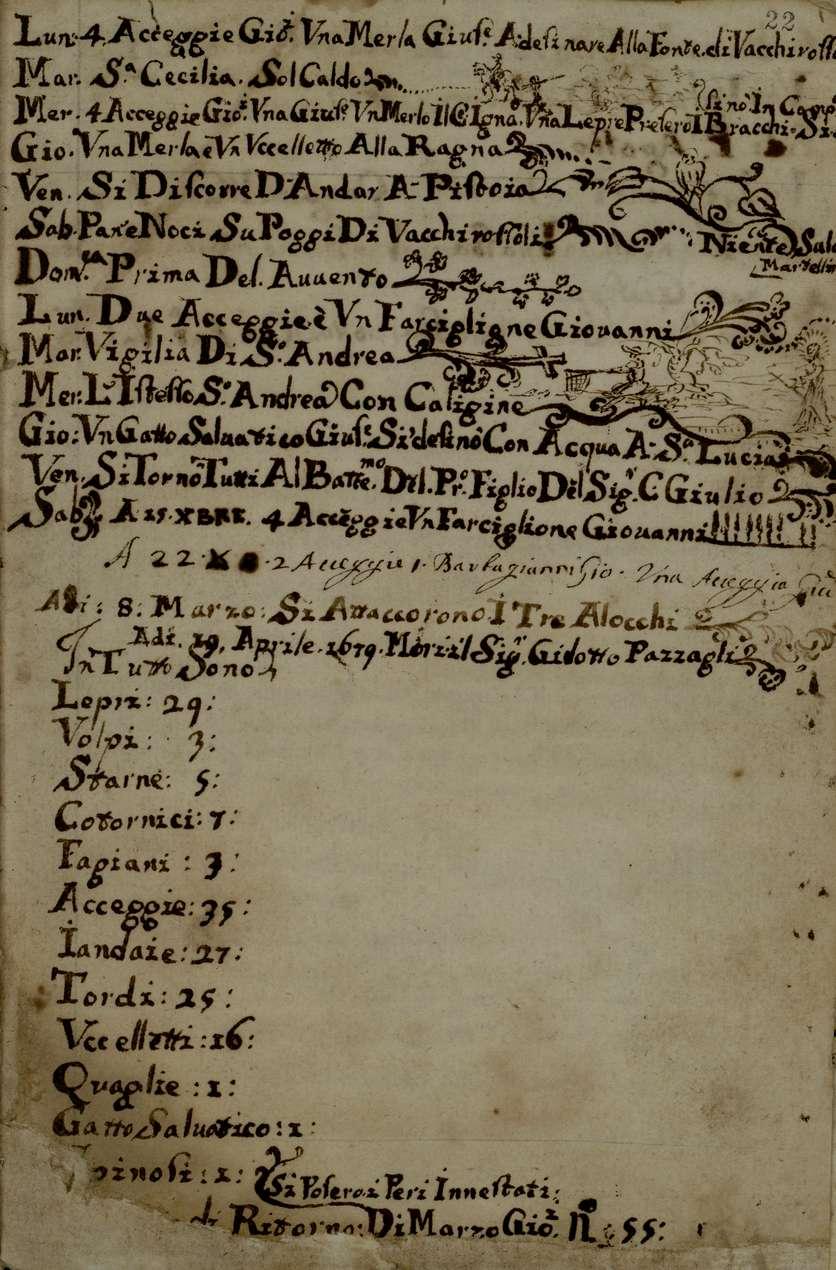 22
Lun. 4. Acceggie Gio.ⁱ Vna Merla Gius.ᵉ A desinare Alla Fonte. di Vacchiross
Mar. S.ᵃ Cecilia. Sol Caldo
sinò In Camp
Mer. 4 Acceggie Gio.ⁱ Vna Gius.ᵉ Vn Merlo Il C. Igna.º Vna Lepre Presero I Bracchi. Si
Gio. Vna Merla è Vn Vccelletto Alla Ragna
Ven. Si Discorre D'Andar A Pistoia
Sab. Pane Noci Su Poggi Di Vacchirossoli Niente Sal
Martelli
Dom.ᶜᵃ Prima Del. Auuento
Lun. Due Acceggie. è Vn Farciglione Giouanni
Mar. Vigilia Di S.º Andrea
Mer. L'Istesso S.º Andrea Con Caligine
Gio: Vn Gatto Saluatico Gius.ᵉ Si desinò Con Acqua A S.ᵃ Lucia
Ven. Si Tornò Tutti Al Batt.ᵐᵒ Del. Pr.º Figlio Del Sig.ʳ C Giulio
Sab. A 15. XBRE. 4 Acceggie Vn Farciglione Giouanni
A 22 X 2 Acceggie 1. Barbagianni Gio. Vna Acceggia Gio
Adi: 8: Marzo: Si Attaccorono I Tre Alocchi
Adi. 19. Aprile. 1679. Morì il Sig.ʳ Gidotto Pazzagli
In Tutto Sono
Lepri: 29:
Volpi: 3:
Starne: 5:
Cotornici: 7:
Fagiani: 3:
Acceggie: 35:
Iandaie: 27:
Tordi: 25:
Vccelletti: 16:
Quaglie: 1:
Gatto Saluatico: 1:
pinosi: 1: Si Poseroi Peri Innestati:
di Ritorno: Di Marzo Gio.ⁱ N.º 55: